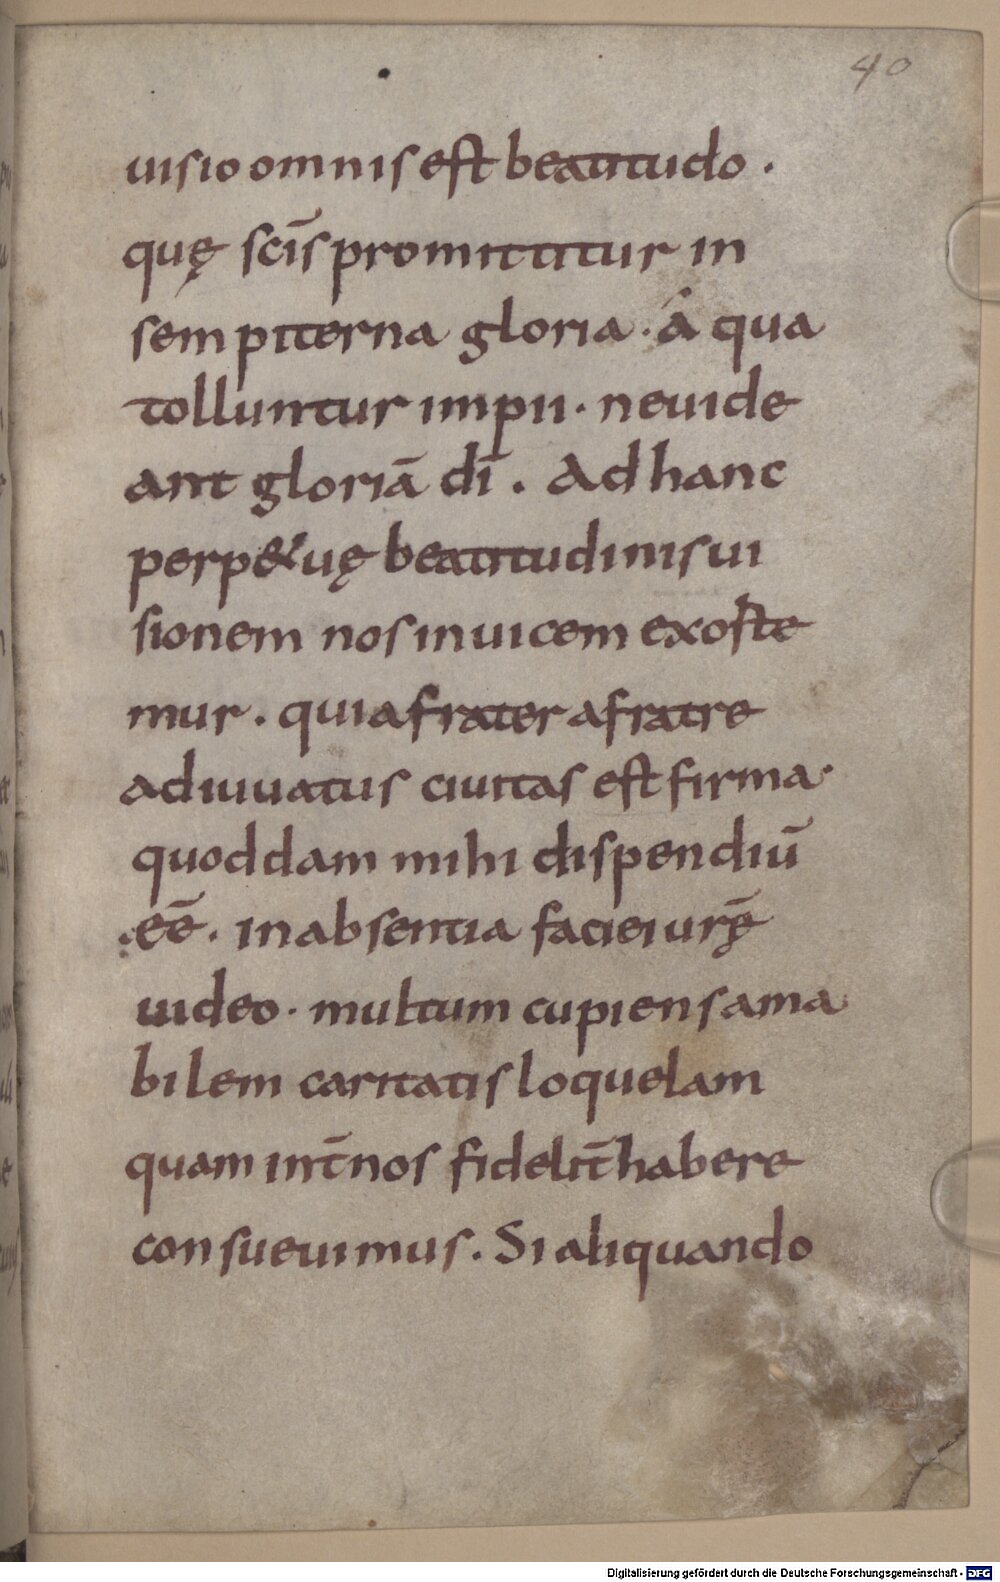 40
uisio omnis est beatitudo .
quę scīs promittitur in
sempiterna gloria . á qua
tolluntur impii . ne uide
ant gloriā dī . Ad hanc
perp&uę beatitudinis ui
sionem nos inuicem exoste
mur . quia frater a fratre
adiuuatus ciuitas est firma .
quoddam mihi dispendiū
eē . in absentia faciei urę̄
uideo . multum cupiens ama
bilem caritatis loquelam
quam int̄ nos fidelit̄ habere
consueuimus . Si aliquando
Digitalisierung gefördert durch die Deutsche Forschungsgemeinschaft - DFG